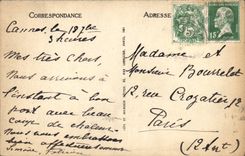 CORRESPONDANCE
ADRESSE
Cannes, le 18 7bre
3 heures
Mes très chers,
Nous arrivons à
l'instant à bon
port avec beau
coup de chaleur
Nous vous embrassons
bien affectueusement
15
Madame et
Monsieur Bourrelot
12 rue Crozatier 12
Paris